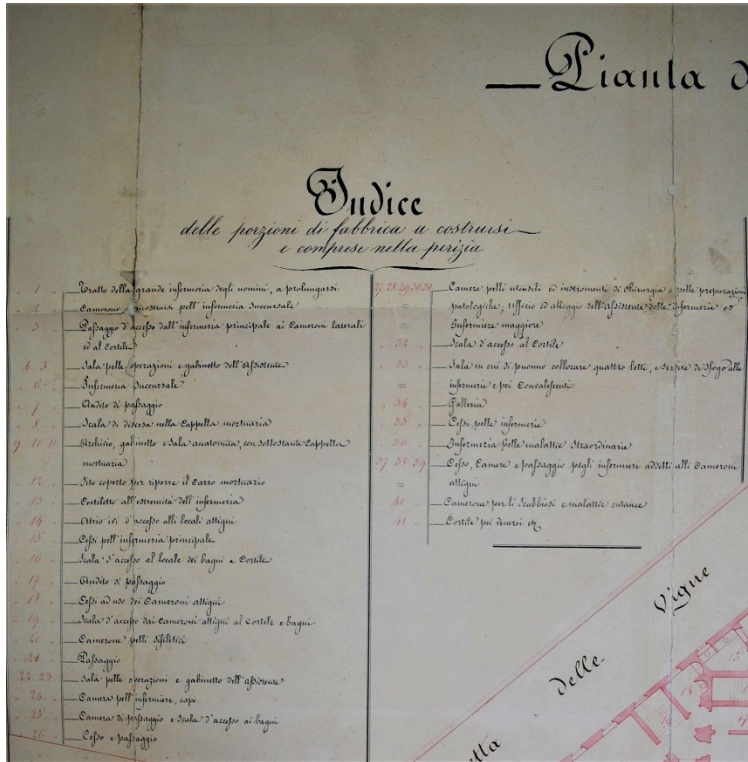 Pianta d
Indice
delle porzioni di fabbrica a costrursi
e comprese nella perizia
1 Tratto della grande infermeria degli uomini, a prolungarsi
2 Camerone a ricostrursi pell'infermeria Succursale
3 Passaggio d'accesso dall'infermeria principale ai Cameroni laterali
ed al Cortile
4. 5 Sala pelle operazioni e gabinetto dell'Assistente
6 Infermeria Succursale
7 Andito di passaggio
8 Scala di discesa nella Cappella mortuaria
9 10 11 Archivio, gabinetto e Sala anatomica, con sottostante Cappella
mortuaria
12 Sito coperto per riporre il Carro mortuario
13 Cortiletto all'estremità dell'infermeria
14 Atrio ivi d'accesso alli locali attigui
15 Cessi pell'infermeria principale
16 Scala d'accesso al locale dei bagni e Cortile
17 Andito di passaggio
18 Cessi ad uso dei Cameroni attigui
19 Scala d'accesso dai Cameroni attigui al Cortile e bagni
20 Camerone pelli Sifilitici
21 Passaggio
22. 23 Sala pelle operazioni e gabinetto dell'Assistente
24 Camera pell'infermiere, capo
25 Camera di passaggio e Scala d'accesso ai bagni
26 Cesso e passaggio
27 28 29 30 31 Camere pelli utensili ed instromenti di Chirurgia e pelle preparazioni
patologiche, Ufficio ed alloggio dell'Assistente delle Infermerie od
Infermiere maggiore
32 Scala d'accesso al Cortile
33 Sala in cui si ponno collocare quattro letti, e servire di sfogo alle
infermerie e pei Convalescenti
34 Galleria
35 Cessi pelle infermerie
36 Infermeria pelle malattie Straordinarie
37 38 39 Cesso, Camere e passaggio pegli infermieri addetti alli Cameroni
attigui
40 Camerone per li Scabbiosi e malattie cutanee
41 Cortile pei Venerei
delle Vigne